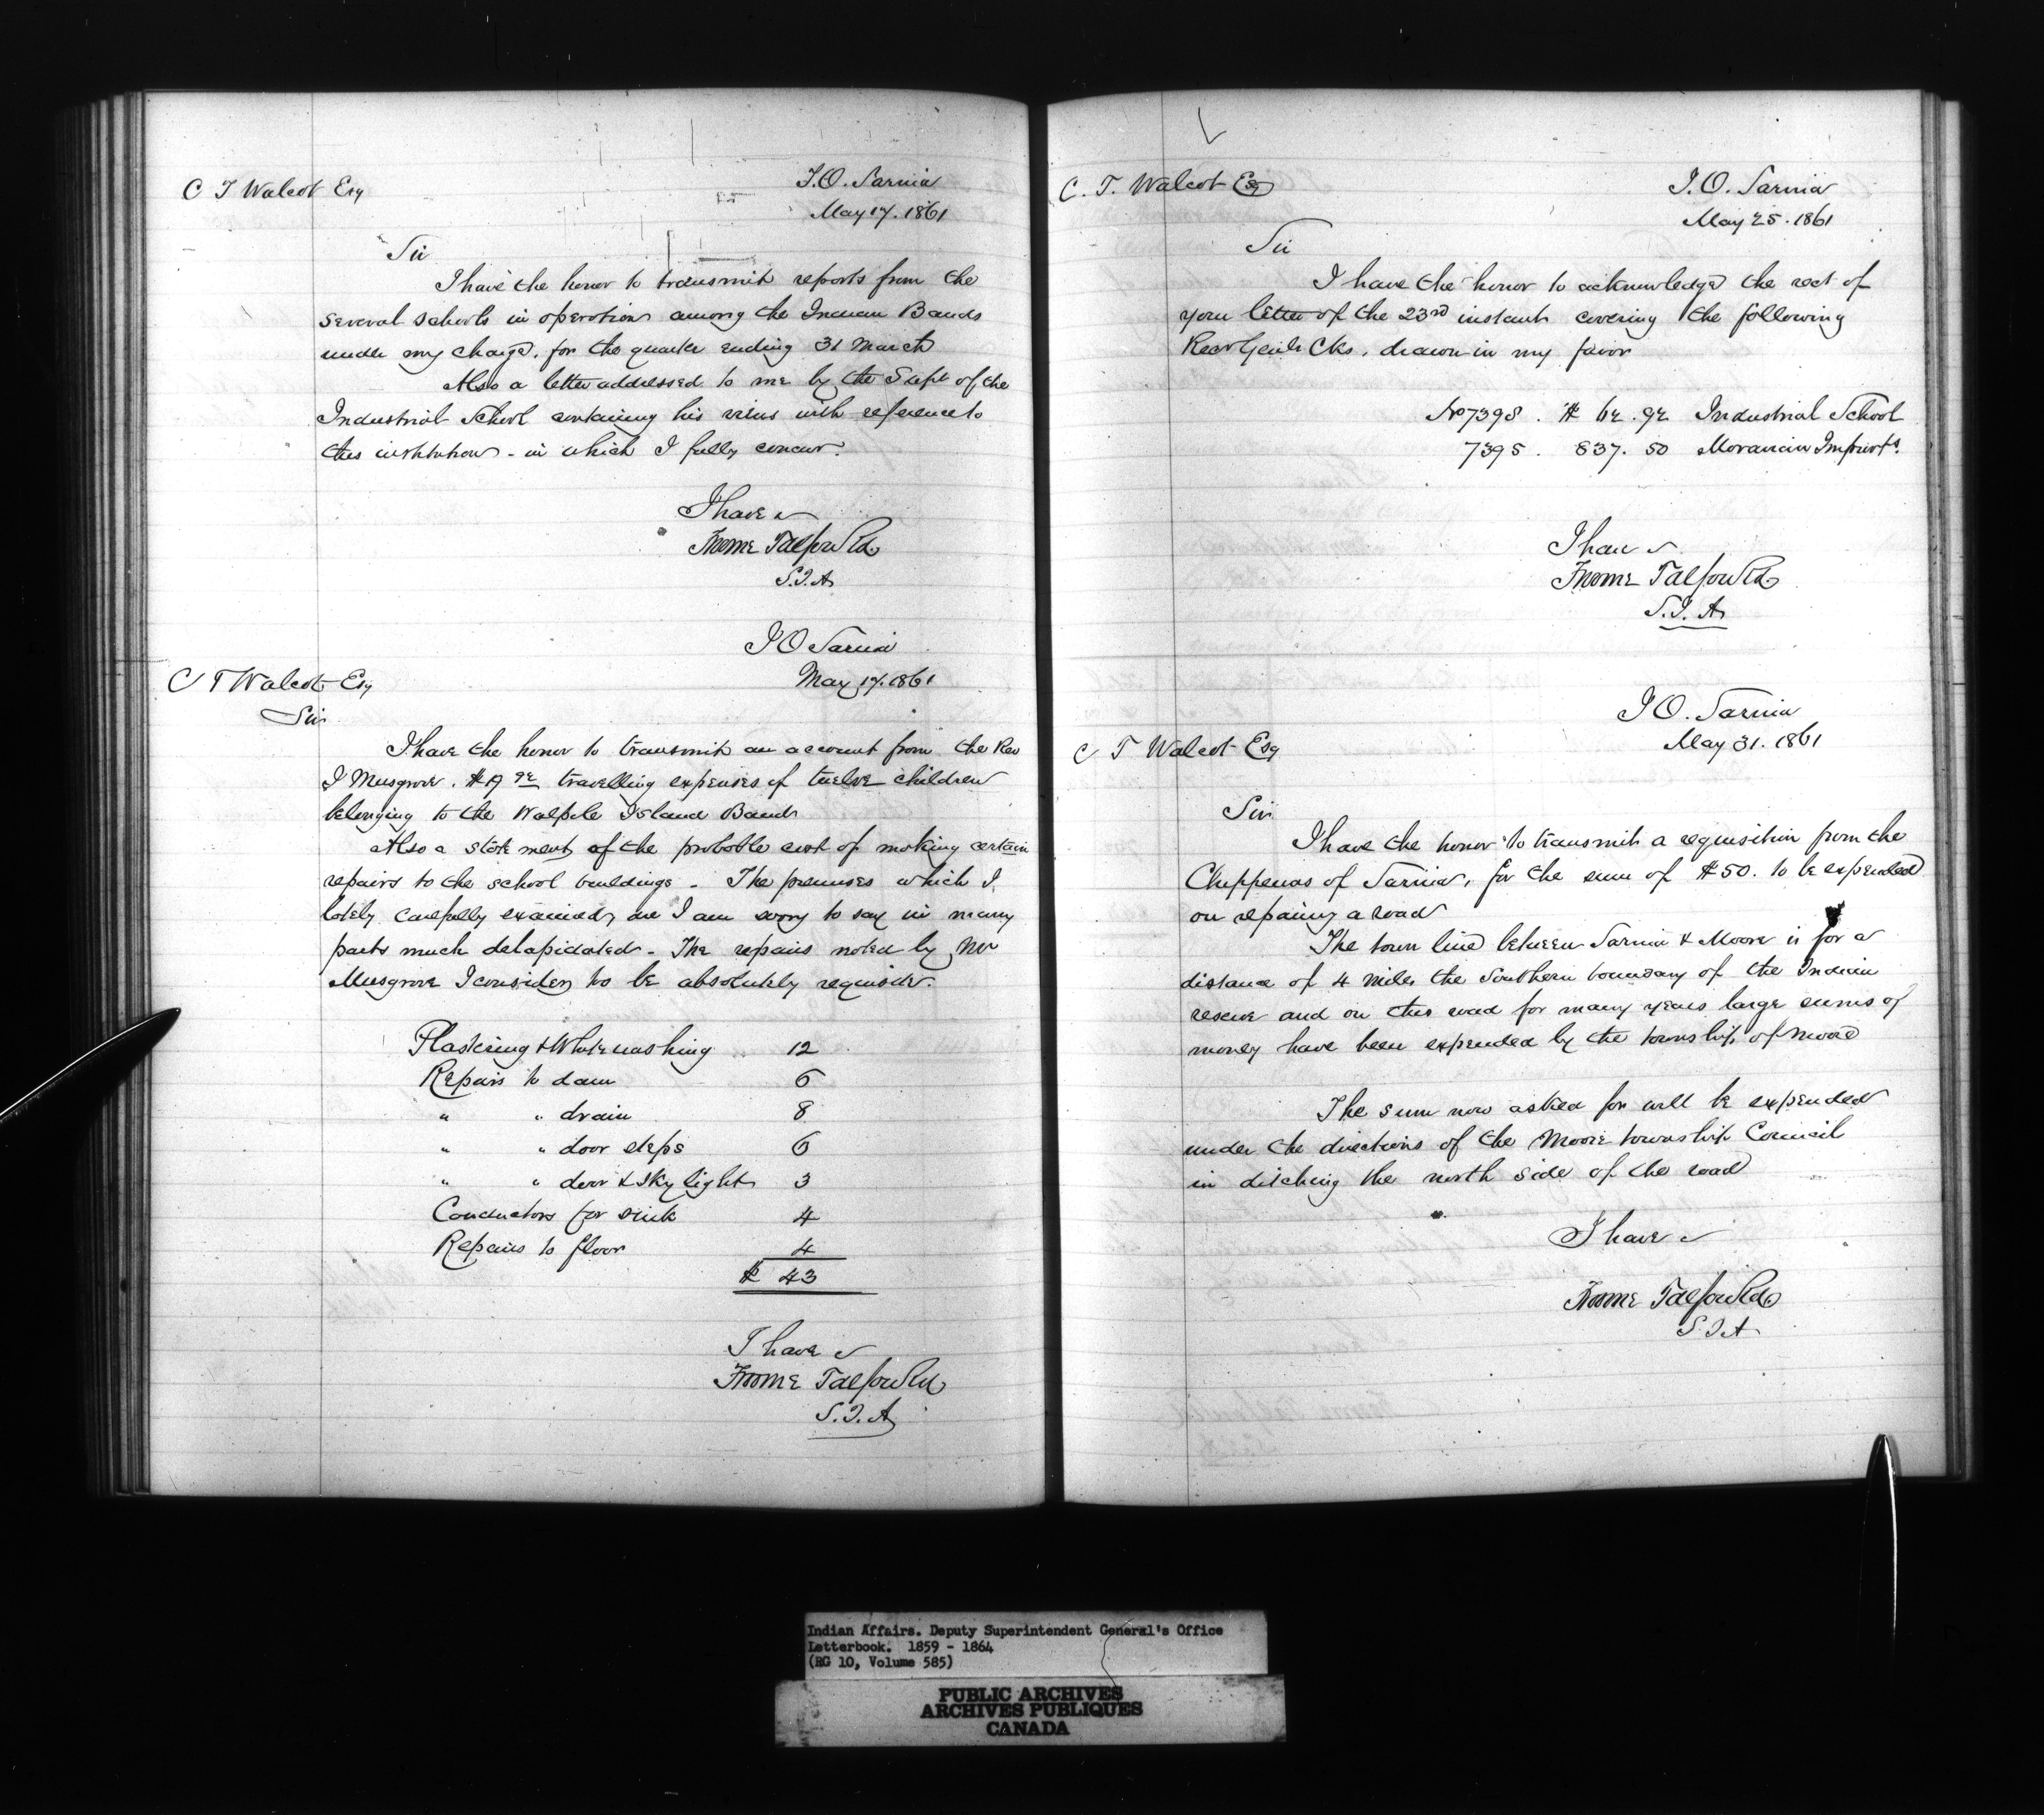 C T Walcot Esq
I.O. Sarnia
May 17. 1861
Sir
I have the honor to transmit reports from the
several schools in operation among the Indian Bands
under my charge, for the quarter ending 31 March
Also a letter addressed to me by the Supt of the
Industrial School containing his views with reference to
this institution - in which I fully concur.
I have &
Froome Talfourd
S.I.A
I O Sarnia
May 17. 1861
C T Walcot Esq
Sir
I have the honor to transmit an account from the Rev
J Musgrove. $ travelling expenses of twelve children
belonging to the Walpole Island Band
Also a statement of the probable cost of making certain
repairs to the school buildings - The premises which I
lately carefully examined, are I am sorry to say in many
parts much delapidated - The repairs noted by Mr
Musgrove I consider to be absolutely requisite.
Plastering & Whitewashing 12
Repairs to dam 6
" " drain 8
" " door steps 6
" " door & sky light 3
Conductors for sink 4
Repairs to floor 4
$ 43
I have &
Froome Talfourd
S.I.A
C. T. Walcot Esq
I.O. Sarnia
May 25. 1861
Sir
I have the honor to acknowledge the rect of
your letter of the 23rd instant covering the following
Recr Genls Cks, drawn in my favor
No 7398. $ 62.92 Industrial School
7395. 837.50 Moravian Improvts.
I have &
Froome Talfourd
S.I.A
I O. Sarnia
May 31. 1861
C T Walcot Esq
Sir
I have the honor to transmit a requisition from the
Chippewas of Sarnia, for the sum of $50. to be expended
on repairing a road
The town line between Sarnia & Moore is for a
distance of 4 miles the Southern boundary of the Indian
reserve and on this road for many years large sums of
money have been expended by the township of Moore
The sum now asked for will be expended
under the directions of the Moore township Council
in ditching the north side of the road
I have &
Froome Talfourd
S.I.A
Indian Affairs. Deputy Superintendent General's Office
Letterbook. 1859 - 1864
(RG 10, Volume 585)
PUBLIC ARCHIVES
ARCHIVES PUBLIQUES
CANADA